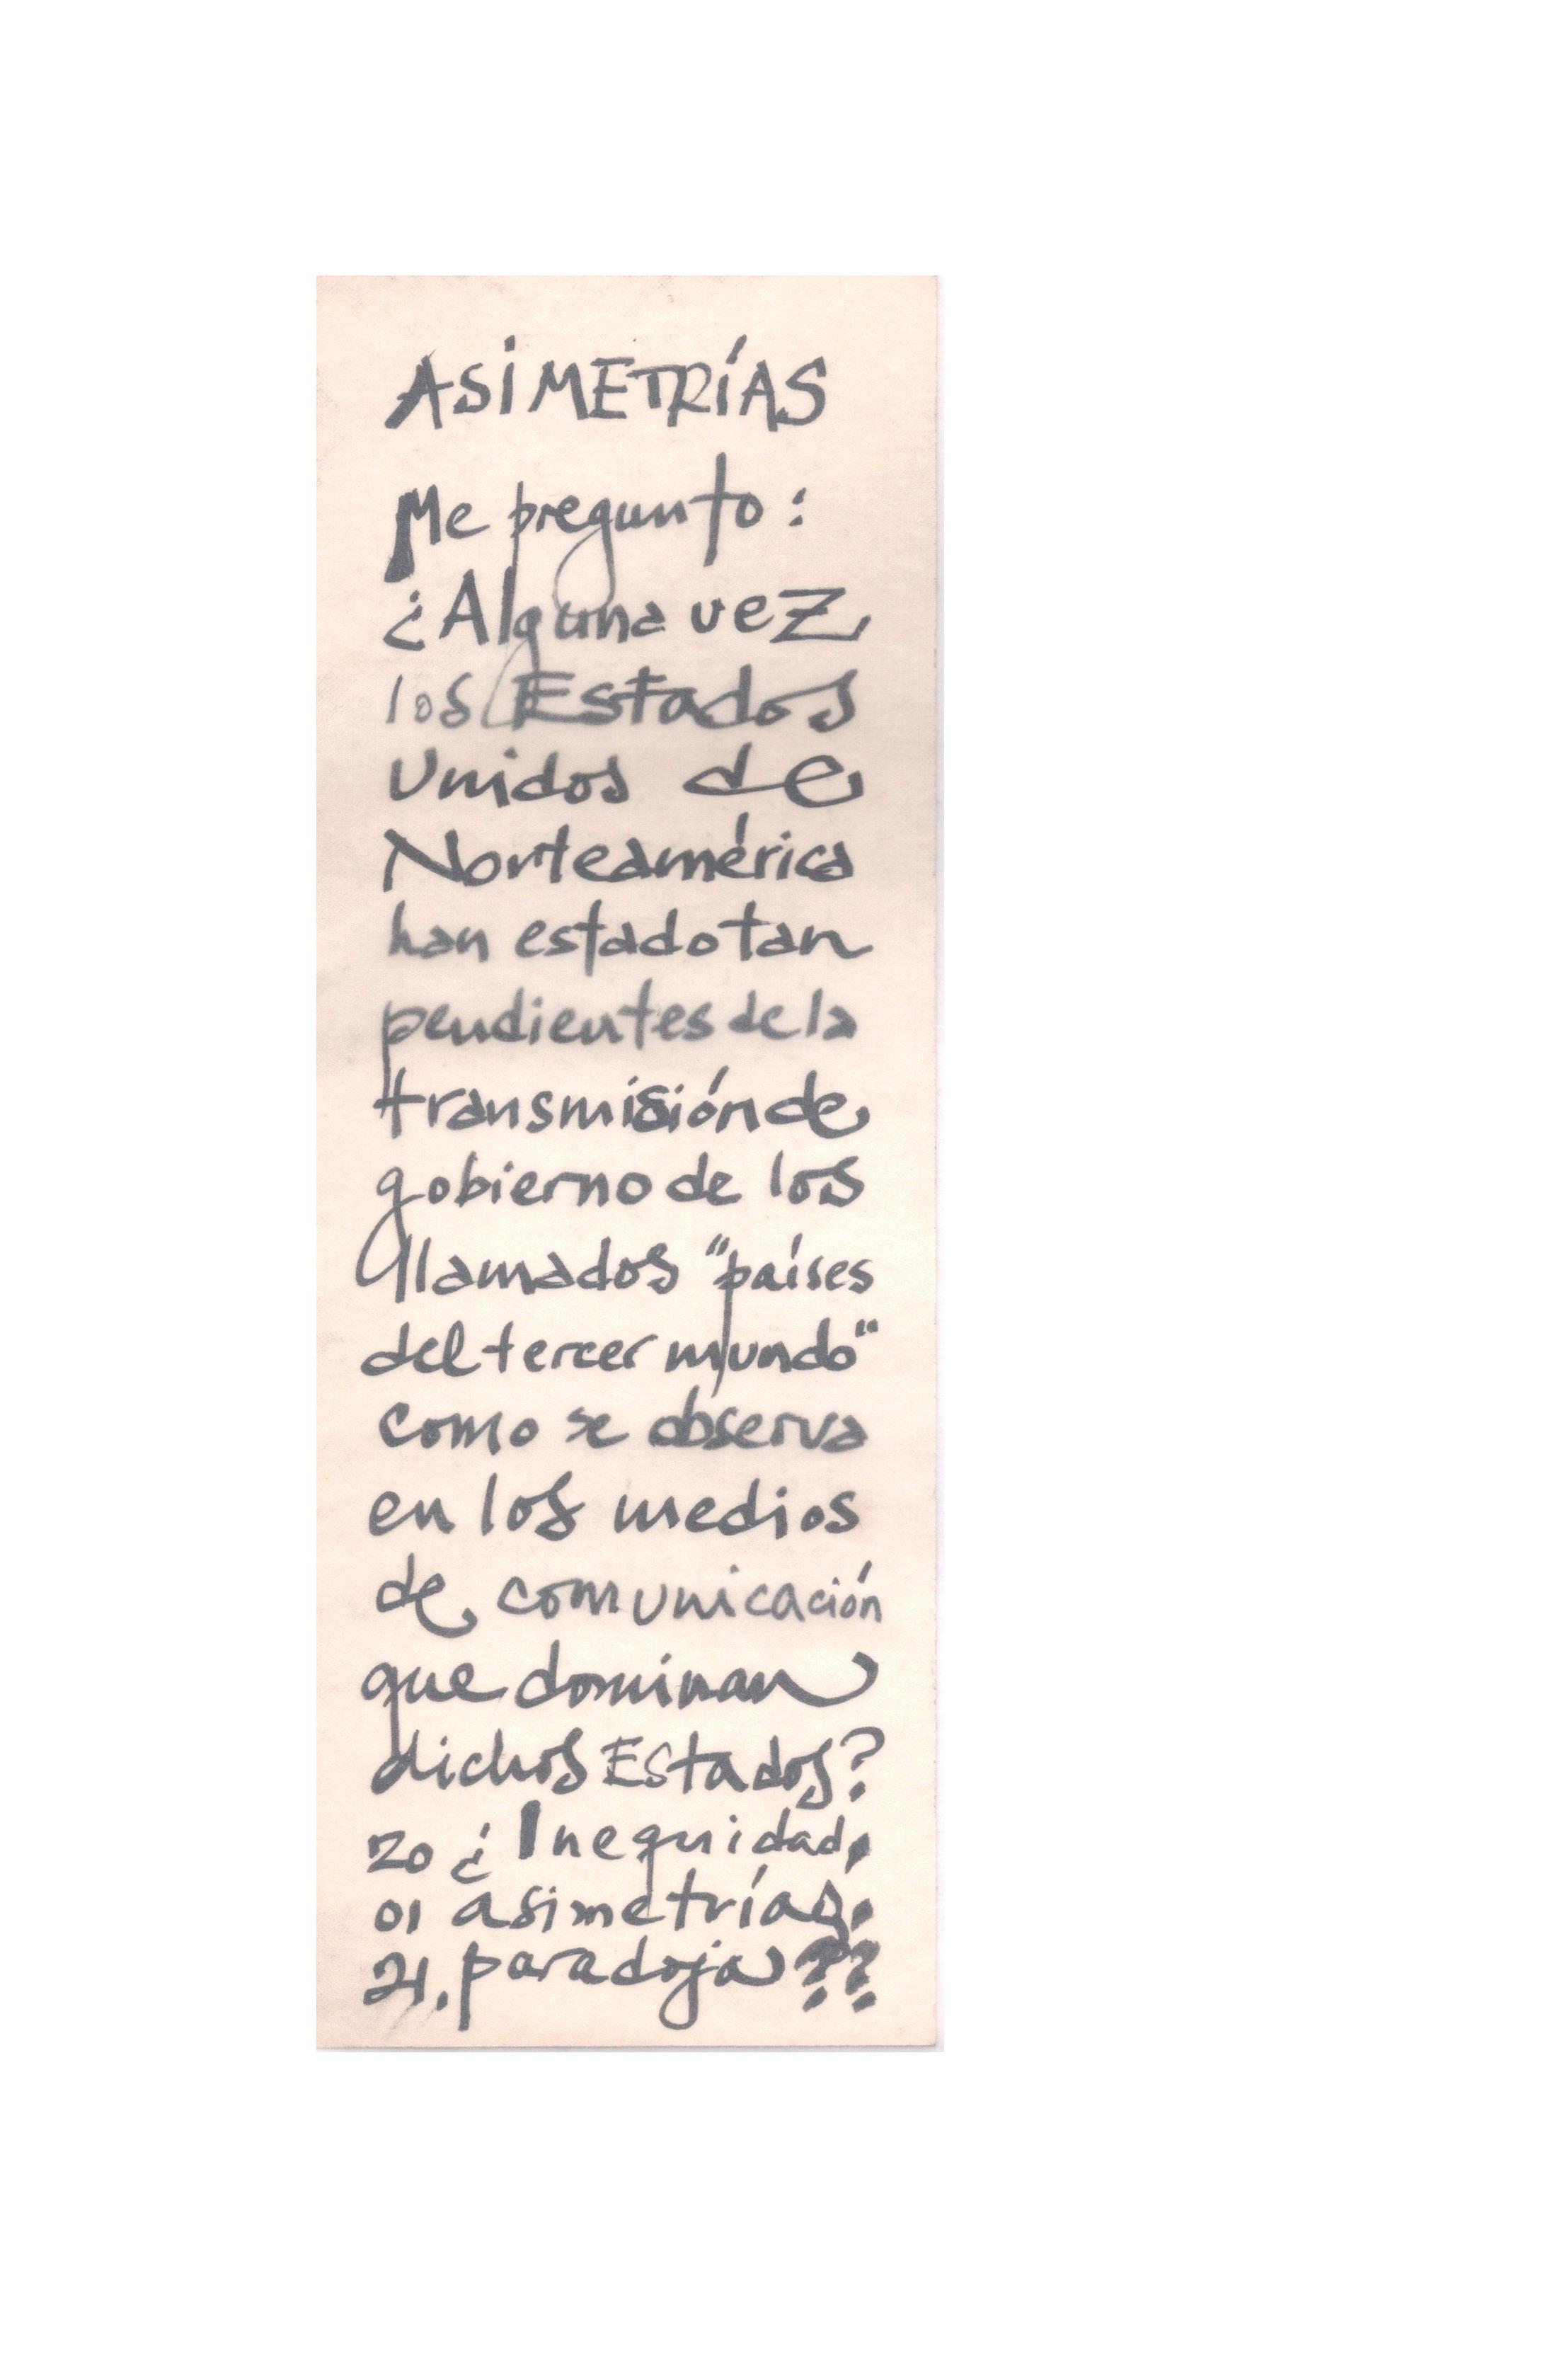 ASIMETRÍAS
Me pregunto:
¿Alguna vez
los Estados
Unidos de
Norteamérica
han estado tan
pendientes de la
transmisión de
gobierno de los
llamados "países
del tercer mundo"
como se observa
en los medios
de comunicación
que dominan
dichos Estados?
20 ¿Inequidad,
01 asimetrías,
21. paradoja??